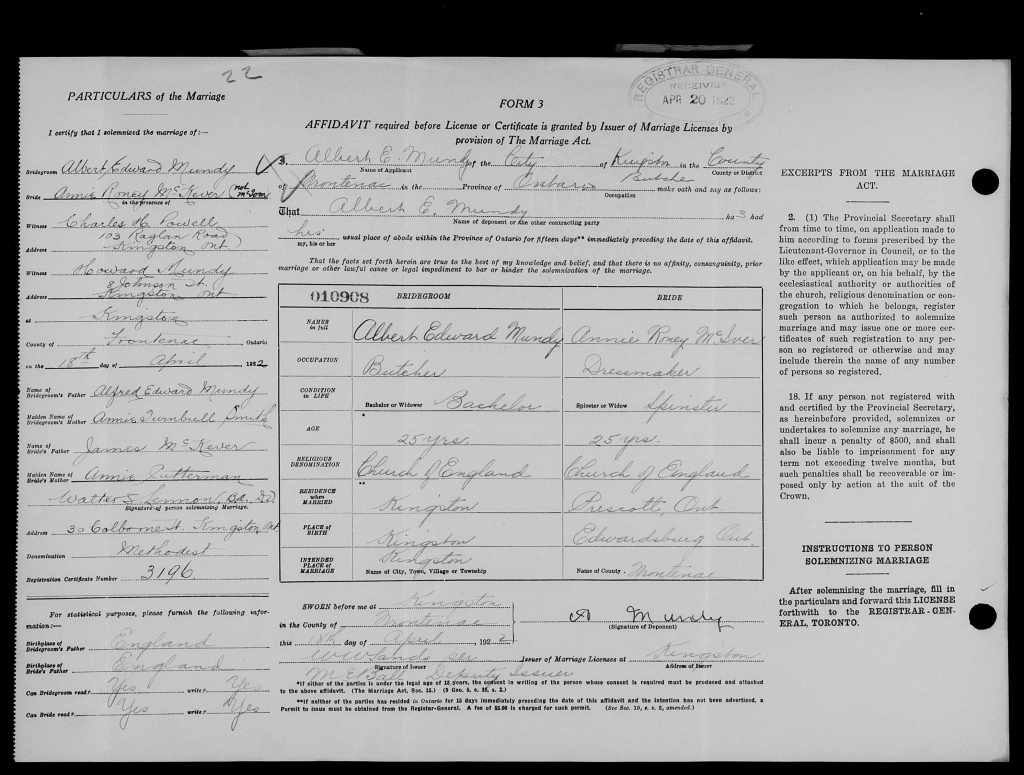 22
PARTICULARS of the Marriage
I certify that I solemnized the marriage of:—
Bridegroom Albert Edward Mundy
Bride Annie Roney McKever (not
in the presence of
Witness Charles H. Powell
103 Raglan Road
Address Kingston Ont
Witness Howard Mundy
8 Johnson St.
Address Kingston Ont
at Kingston
County of Frontenac Ontario
on the 18th day of April 1922
Name of Bridegroom's Father Alfred Edward Mundy
Maiden Name of Bridegroom's Mother Annie Turnbull Smith
Name of Bride's Father James McKever
Maiden Name of Bride's Mother Annie
Walter S. Lennon, BA.
Signature of person solemnizing Marriage.
Address 30 Colborne St. Kingston, Ont
Denomination Methodist
Registration Certificate Number 3196
For statistical purposes, please furnish the following information:—
Birthplace of Bridegroom's Father England
Birthplace of Bride's Father England
Can Bridegroom read? Yes write? Yes
Can Bride read? Yes write? Yes
REGISTRAR GENERAL
RECEIVED
APR 20 1922
FORM 3
AFFIDAVIT required before License or Certificate is granted by Issuer of Marriage Licenses by
provision of The Marriage Act.
I, Albert E. Mundy of the City of Kingston in the County
Name of Applicant County or District
of Frontenac in the Province of Ontario Butcher make oath and say as follows:
Occupation
That Albert E. Mundy has had
Name of deponent or one other contracting party
his usual place of abode within the Province of Ontario for fifteen days** immediately preceding the date of this affidavit.
my, his or her
That the facts set forth herein are true to the best of my knowledge and belief, and that there is no affinity, consanguinity, prior
marriage or other lawful cause or legal impediment to bar or hinder the solemnization of the marriage.
010908 BRIDEGROOM BRIDE
NAMES in full Albert Edward Mundy Annie Roney McIver
OCCUPATION Butcher Dressmaker
CONDITION in LIFE Bachelor or Widower Bachelor Spinster or Widow Spinster
AGE * 25 yrs. 25 yrs.
RELIGIOUS DENOMINATION Church of England Church of England
RESIDENCE when MARRIED ** Kingston Prescott, Ont
PLACE OF BIRTH Kingston Edwardsburg Ont.
INTENDED PLACE OF MARRIAGE Kingston Name of City, Town, Village or Township Name of County Frontenac
SWORN before me at Kingston
in the County of Frontenac
this 18th day of April 1922
A E Mundy
(Signature of Deponent)
Issuer of Marriage Licenses at Kingston
Signature of Issuer Address of Issuer
Deputy Issuer
*If either of the parties is under the legal age of 18 years, the consent in writing of the person whose consent is required must be produced and attached
to the above affidavit. (The Marriage Act, Sec. 15.) (9 Geo. 5, c. 35, s. 2.)
**If neither of the parties has resided in Ontario for 15 days immediately preceding the date of this affidavit and the intention has not been advertised, a
Permit to issue must be obtained from the Registrar-General. A fee of $5.00 is charged for such permit. (See Sec. 19, s. s. 2, amended.)
EXCERPTS FROM THE MARRIAGE
ACT.
2. (1) The Provincial Secretary shall
from time to time, on application made to
him according to forms prescribed by the
Lieutenant-Governor in Council, or to the
like effect, which application may be made
by the applicant or, on his behalf, by the
ecclesiastical authority or authorities of
the church, religious denomination or con-
gregation to which he belongs, register
such person as authorized to solemnize
marriage and may issue one or more cer-
tificates of such registration to any per-
son so registered or otherwise and may
include therein the name of any number
of persons so registered.
18. If any person not registered with
and certified by the Provincial Secretary,
as hereinbefore provided, solemnizes or
undertakes to solemnize any marriage, he
shall incur a penalty of $500, and shall
also be liable to imprisonment for any
term not exceeding twelve months, but
such penalties shall be recoverable or im-
posed only by action at the suit of the
Crown.
INSTRUCTIONS TO PERSON
SOLEMNIZING MARRIAGE
After solemnizing the marriage, fill in
the particulars and forward this LICENSE
forthwith to the REGISTRAR-GEN-
ERAL, TORONTO.